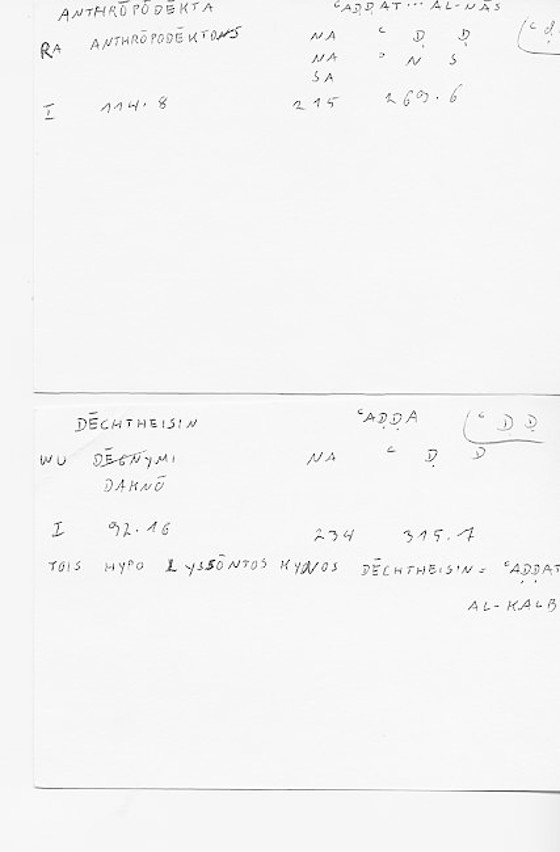 ANTHRŌPŌDĒKTA ʿAḌḌAT ... AL-NĀS
RA ANTHRŌPODĒKTONS NA ʿ Ḍ Ḍ
NA ʾ N S
SA
I 114.8 215 269.6
DĒCHTHEISIN ʿAḌḌA ( ʿ Ḍ Ḍ
WU DĒGNYMI NA ʿ Ḍ Ḍ
DAKNŌ
I 92.16 234 315.7
TOIS HYPO LYSSŌNTOS KYNOS DĒCHTHEISIN = ʿAḌḌAT
AL-KALB